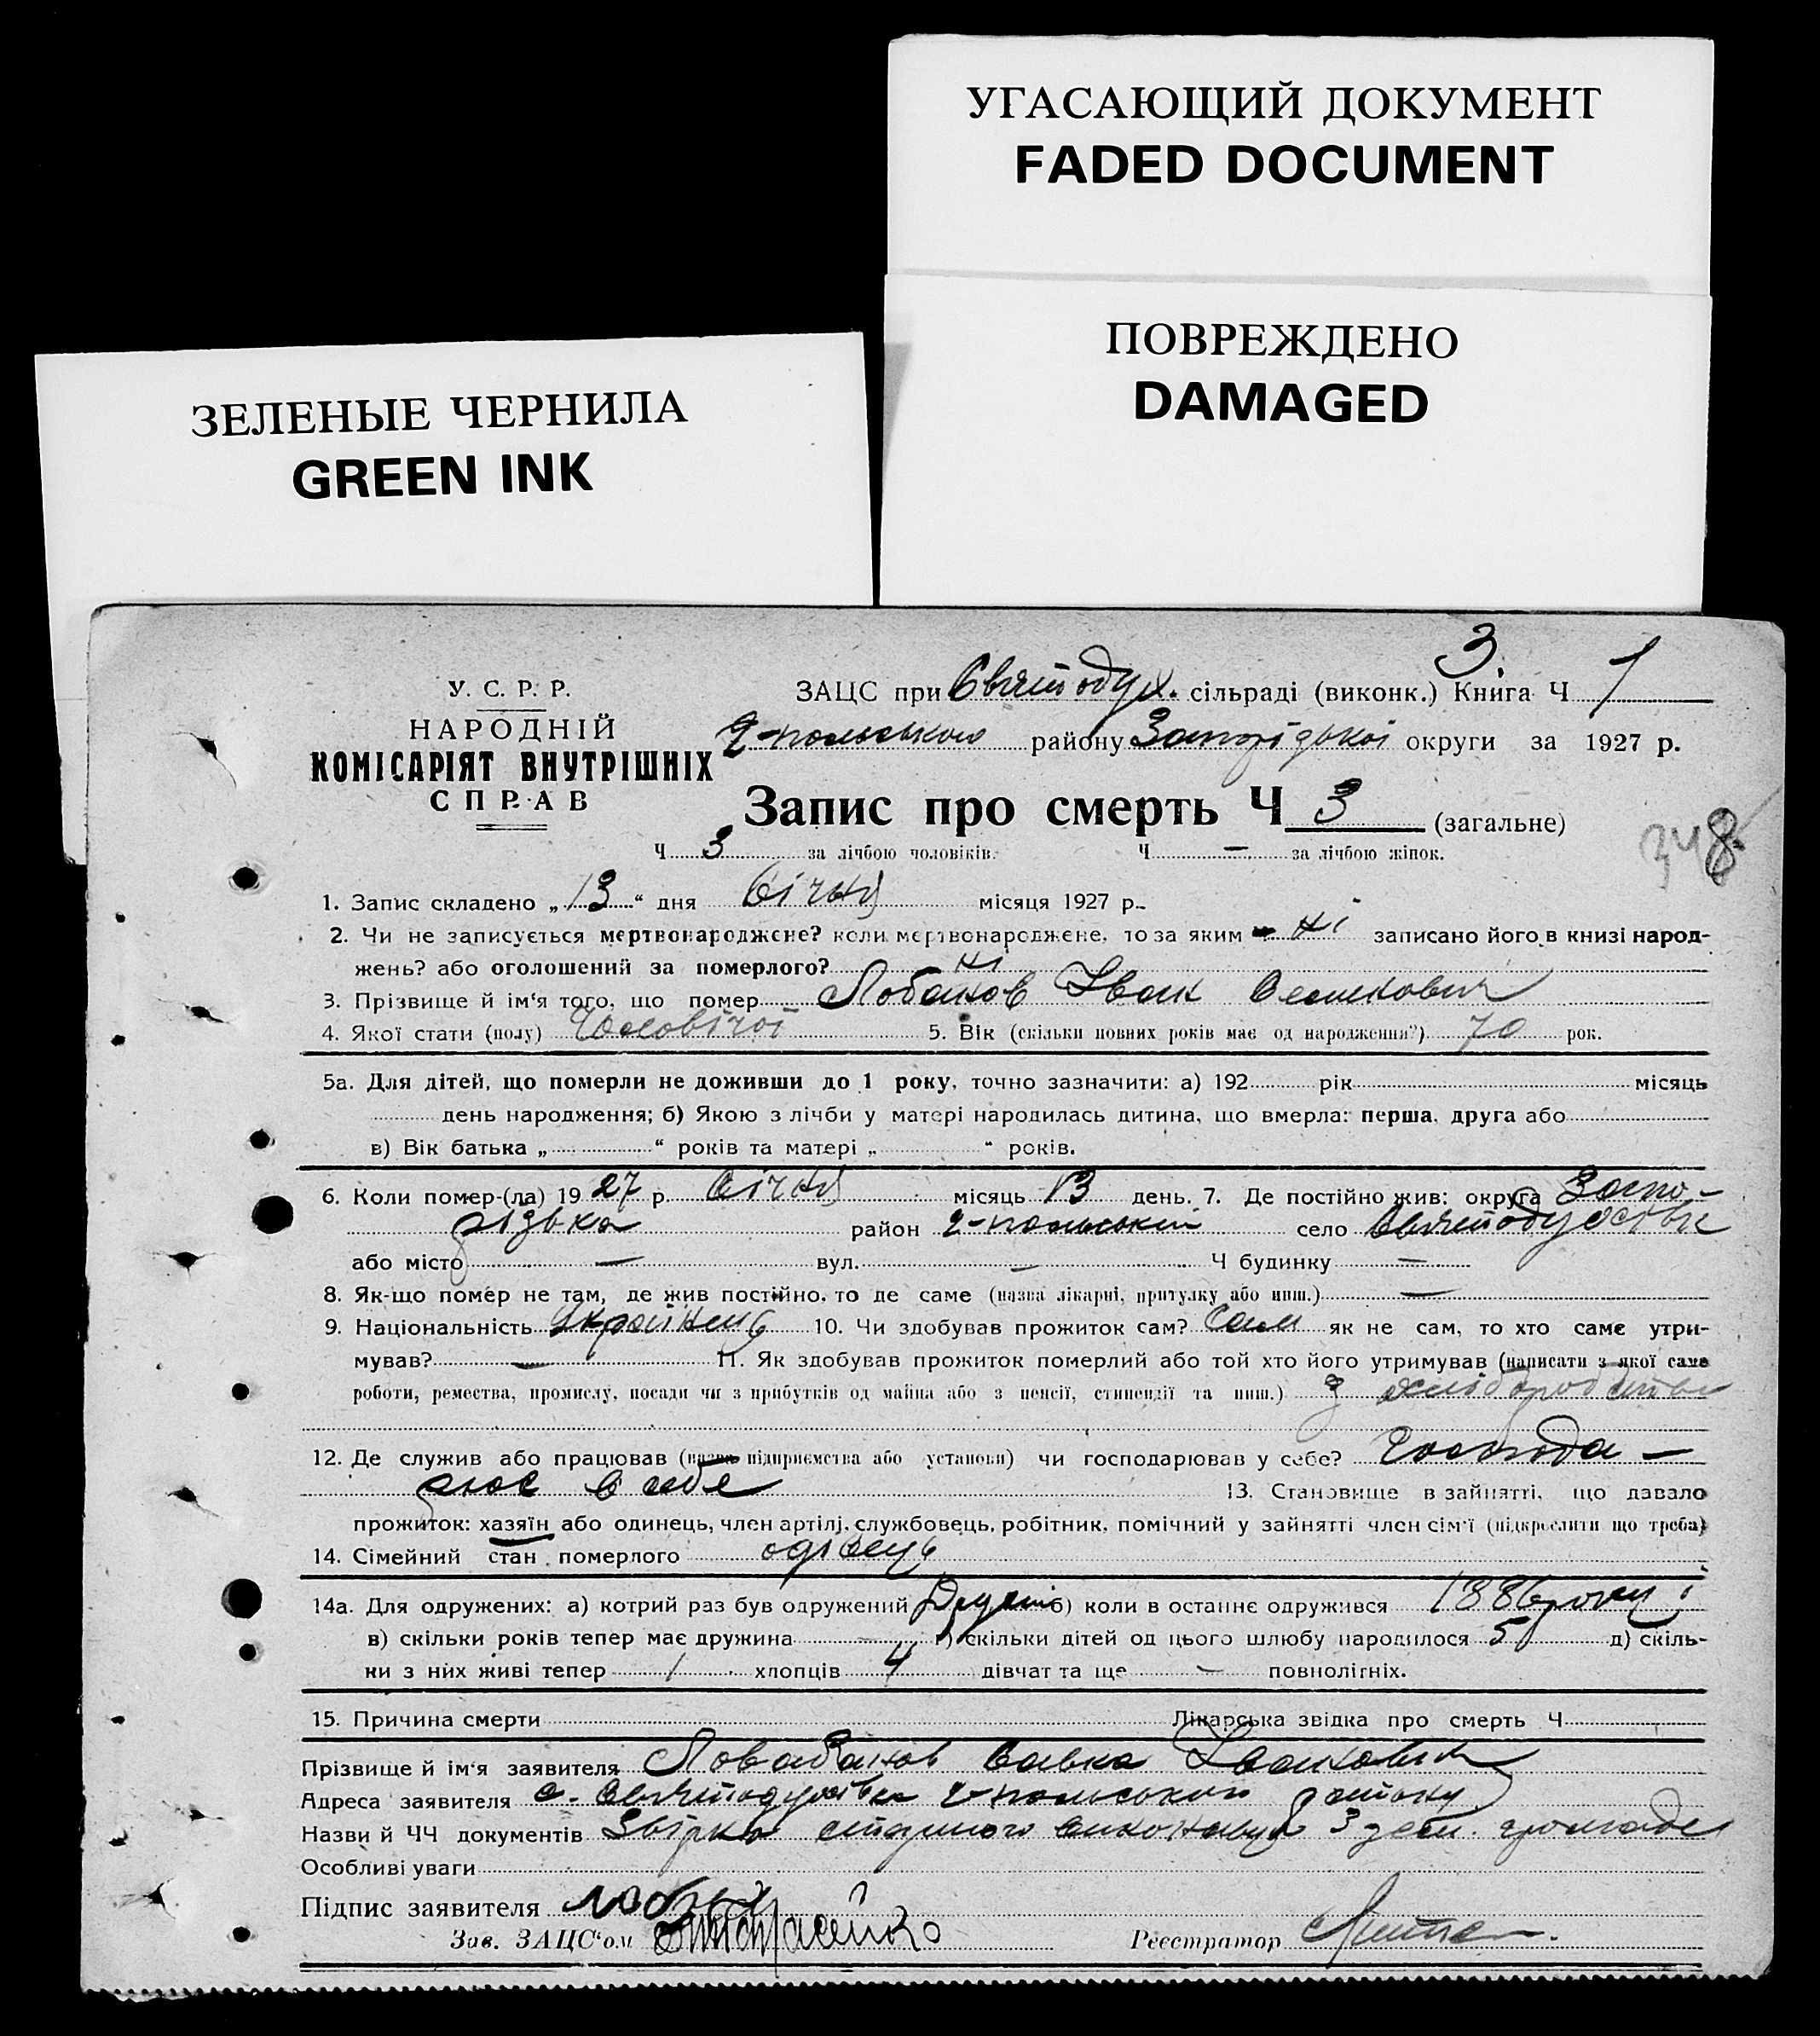 УГАСАЮЩИЙ ДОКУМЕНТ
FADED DOCUMENT
ПОВРЕЖДЕНО
DAMAGED
ЗЕЛЕНЫЕ ЧЕРНИЛА
GREEN INK
3.
У. С. Р. Р.
НАРОДНІЙ
КОМІСАРІЯТ ВНУТРІШНІХ
СПРАВ
ЗАЦС при Святодух. сільраді (виконк.) Книга Ч 1
Ч-польського району Запорізької округи за 1927 р.
Запис про смерть Ч 3 (загальне)
348
Ч 3 за лічбою чоловіків. Ч — за лічбою жінок.
1. Запис складено „13“ дня Січня місяця 1927 р.
2. Чи не записується мертвонароджене? коли мертвонароджене, то за яким ні записано його в книзі народ-
жень? або оголошений за померлого? ні
3. Прізвище й ім'я того, що помер Лобанов Іван
4. Якої стати (полу) Чоловічої 5. Вік (скільки повних років має од народження?) 70 рок.
5а. Для дітей, що померли не доживши до 1 року, точно зазначити: а) 192 рік місяць
день народження; б) Якою з лічби у матері народилась дитина, що вмерла: перша, друга або
в) Вік батька „ “ років та матері „ “ років.
6. Коли помер-(ла) 1927 р. Січня місяць 13 день. 7. Де постійно жив: округа Запо-
різька район Ч-польський село Святодухівка
або місто — вул. — Ч будинку —
8. Як-що помер не там, де жив постійно, то де саме (назва лікарні, притулку або инш.) —
9. Національність Українець 10. Чи здобував прожиток сам? Сам як не сам, то хто саме утри-
мував? — 11. Як здобував прожиток померлий або той хто його утримував (написати з якої саме
роботи, ремества, промислу, посади чи з прибутків од майна або з пенсії, стипендії та инш.) З хліборобства
12. Де служив або працював (назва підприємства або установи) чи господарював у себе? Господа-
рює в себе 13. Становище в зайнятті, що давало
прожиток: хазяїн або одинець, член артілі, службовець, робітник, помічний у зайнятті член сім'ї (підкреслити що треба)
14. Сімейний стан померлого одівець
14а. Для одружених: а) котрий раз був одружений Другий б) коли в останнє одружився 1886 року
в) скільки років тепер має дружина — г) скільки дітей од цього шлюбу народилося 5 д) скіль-
ки з них живі тепер 1 хлопців 4 дівчат та ще — повнолітніх.
15. Причина смерти Лікарська звідка про смерть Ч
Прізвище й ім'я заявителя Савка Іванович
Адреса заявителя с. Святодухівка Ч-польського району
Назви й ЧЧ документів Звірка 3 громади
Особливі уваги
Підпис заявителя
Зав. ЗАЦС'ом Реєстратор